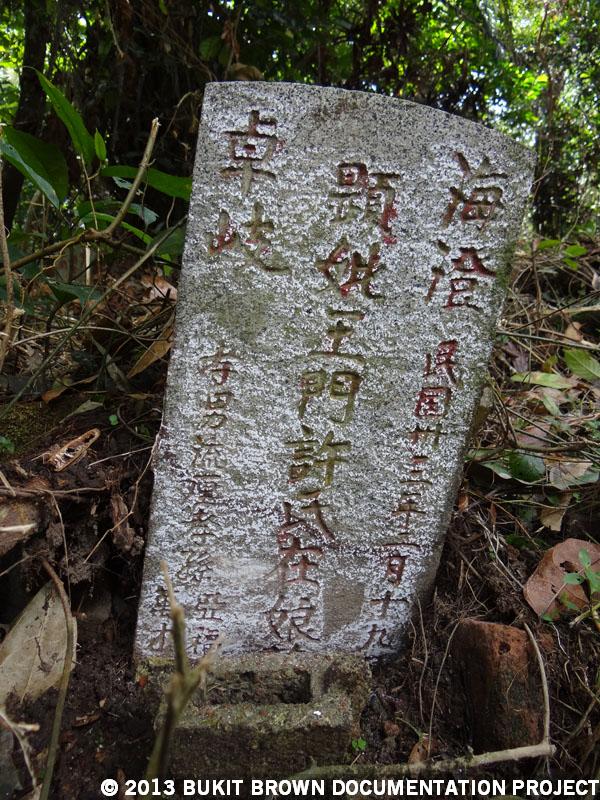 海澄
民国卅三年二月十九
顯妣王門許氏在娘
卓岐
孝男流 孝孫亞福
華才
© 2013 BUKIT BROWN DOCUMENTATION PROJECT